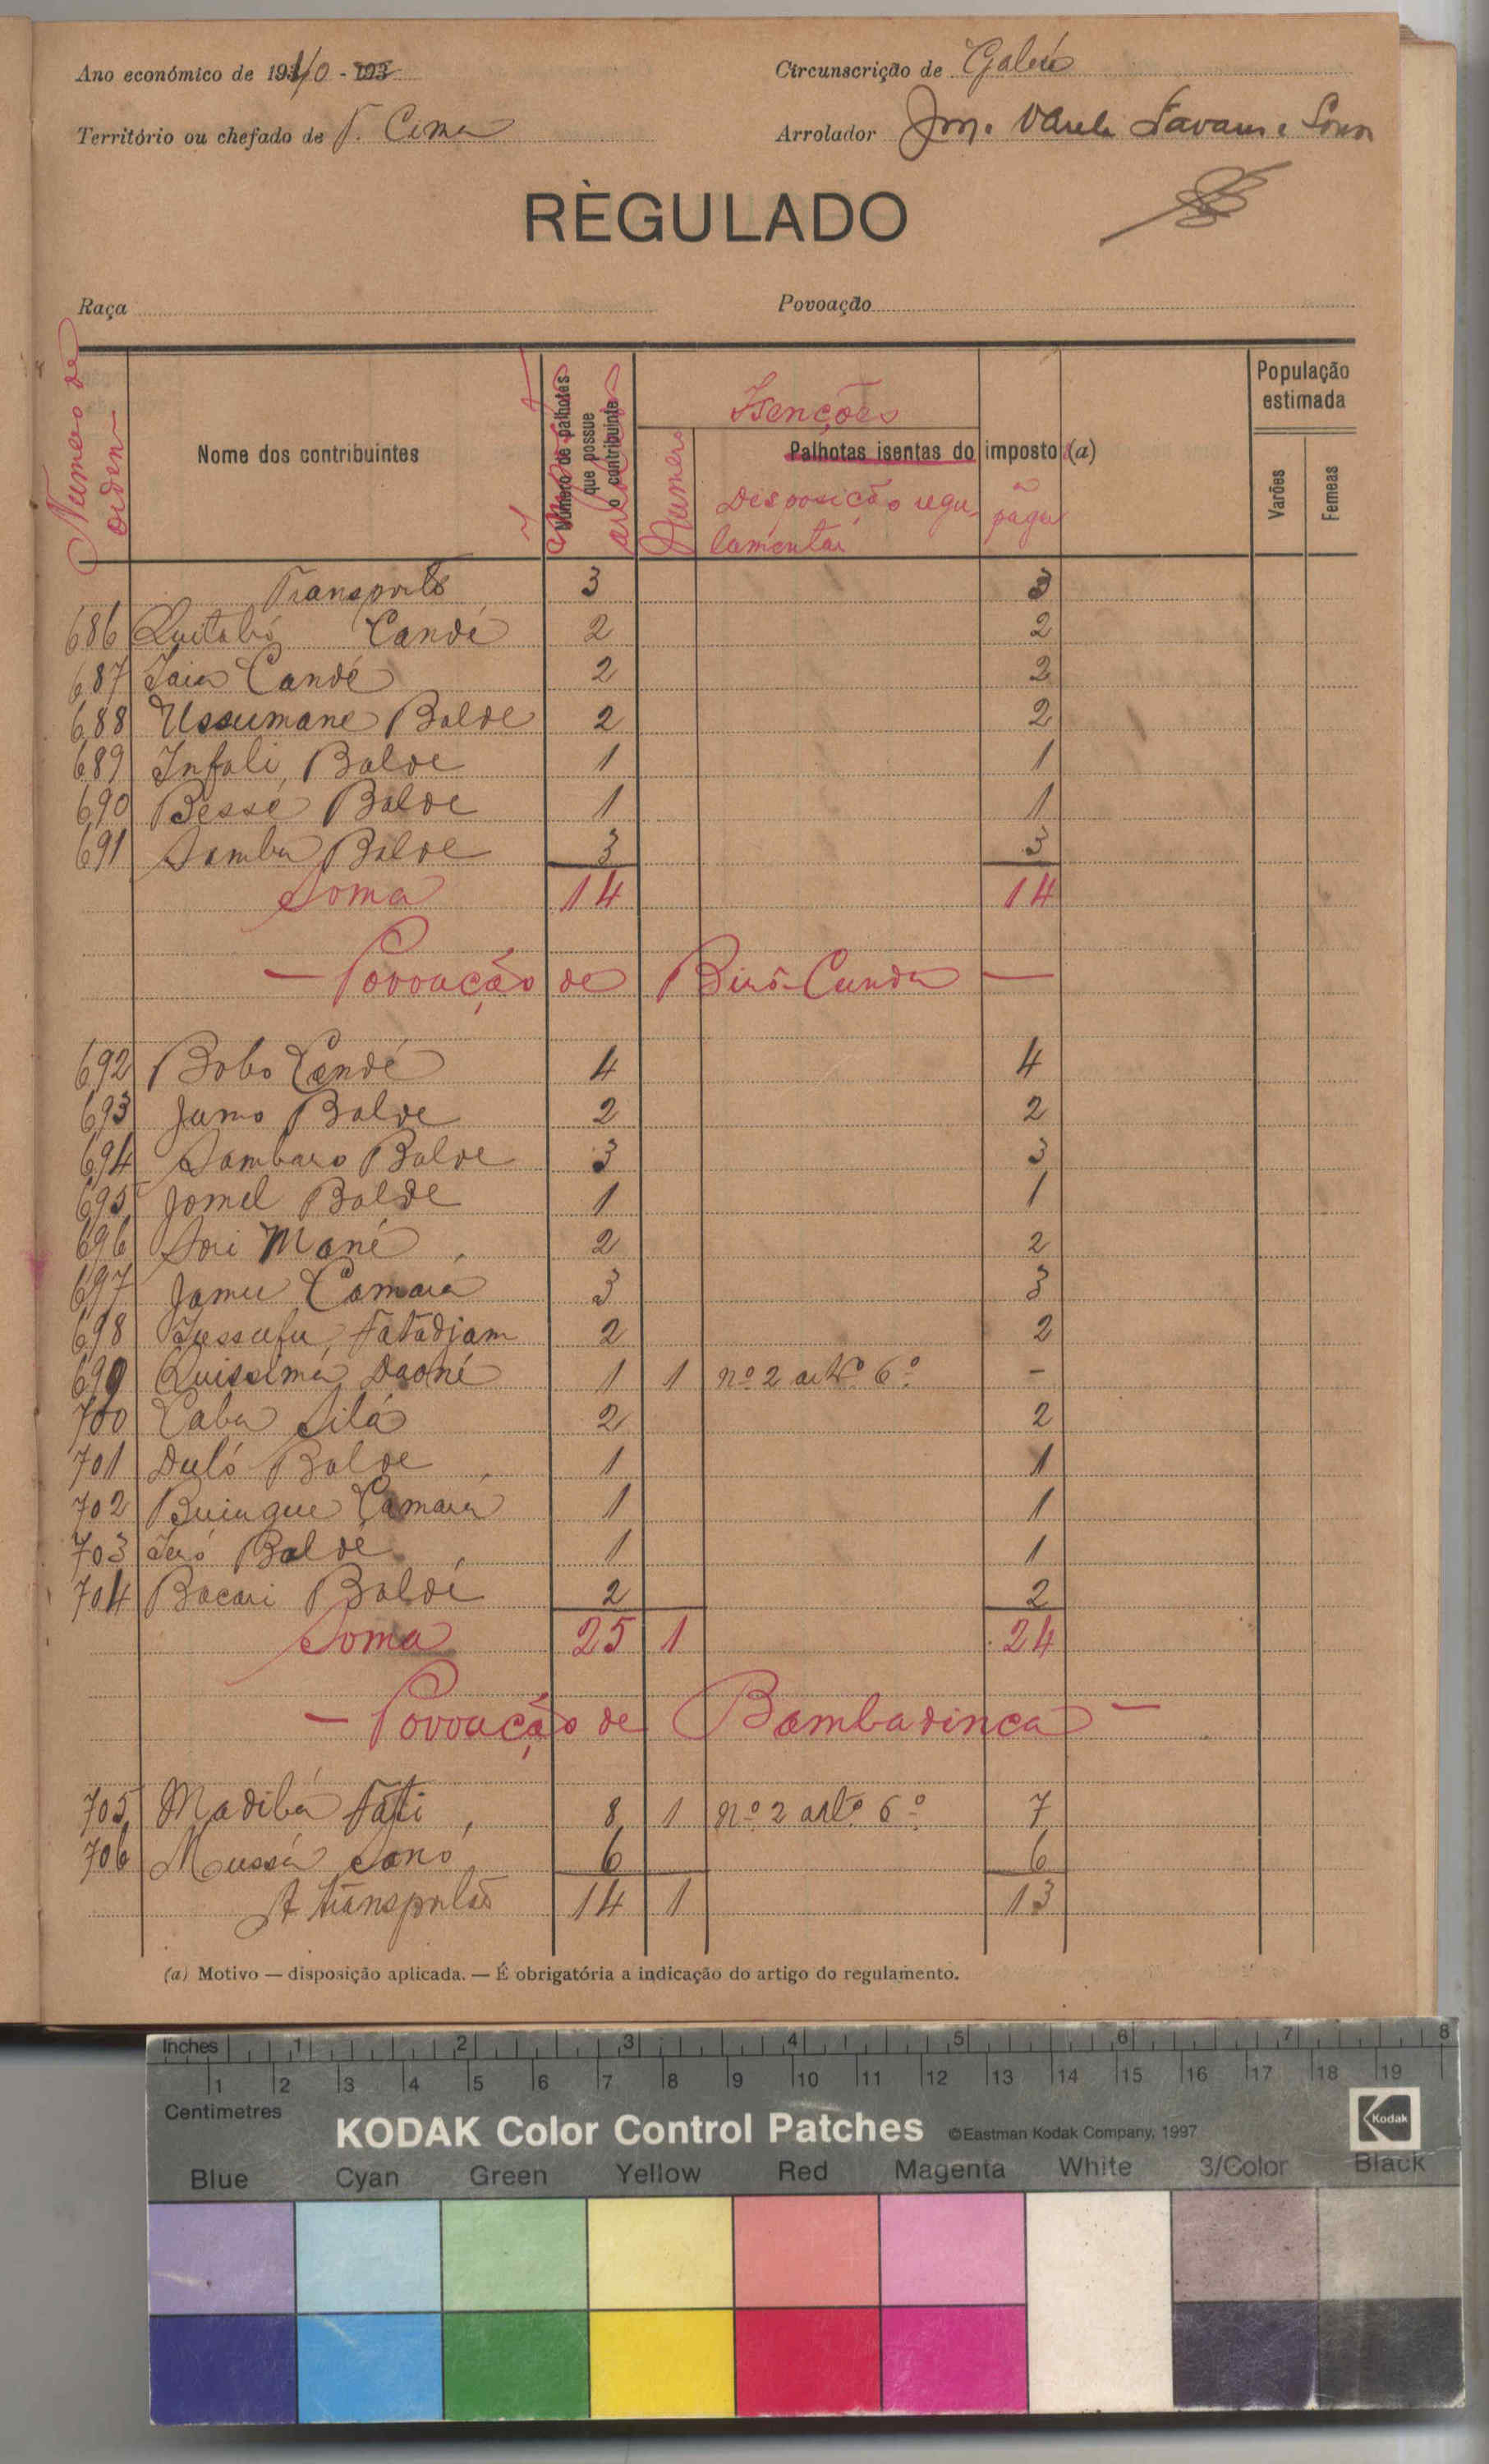 Ano económico de 1940 - 193
Circunscrição de Gabú
Território ou chefado de P. Cima
Arrolador
RÈGULADO
Raça
Povoação
Numero de ordem
Nome dos contribuintes
Número de palhotes que possue o contribuinte
Isenções
Numero
Palhotas isentas do imposto (a)
Disposição regulamentar
a pagar
População estimada
Varões
Femeas
Transporte 3 3
686 Candé 2 2
687 Candé 2 2
688 Ussumane Balde 2 2
689 Infali Balde 1 1
690 Bessé Balde 1 1
691 Samba Balde 3 3
Soma 14 14
— Povoação de Biró-Cunda —
692 Bobo Candé 4 4
693 Jumo Balde 2 2
694 Sambaro Balde 3 3
695 Jomel Balde 1 1
696 Sori Mané 2 2
697 Camara 3 3
698 Fatadjam 2 2
699 Quissima 1 1 nº 2 artº 6º -
700 Caba Silá 2 2
701 Duló Balde 1 1
702 Camará 1 1
703 Balde 1 1
704 Bacari Baldé 2 2
Soma 25 1 24
— Povoação de Bambadinca —
705 Madibá Fati 8 1 nº 2 artº 6º 7
706 Mussá Sanó 6 6
A transportar 14 1 13
(a) Motivo — disposição aplicada. — É obrigatória a indicação do artigo do regulamento.
Inches 1 2 3 4 5 6 7 8
1 2 3 4 5 6 7 8 9 10 11 12 13 14 15 16 17 18 19
Centimetres
KODAK Color Control Patches ©Eastman Kodak Company, 1997 Kodak
Blue Cyan Green Yellow Red Magenta White 3/Color Black